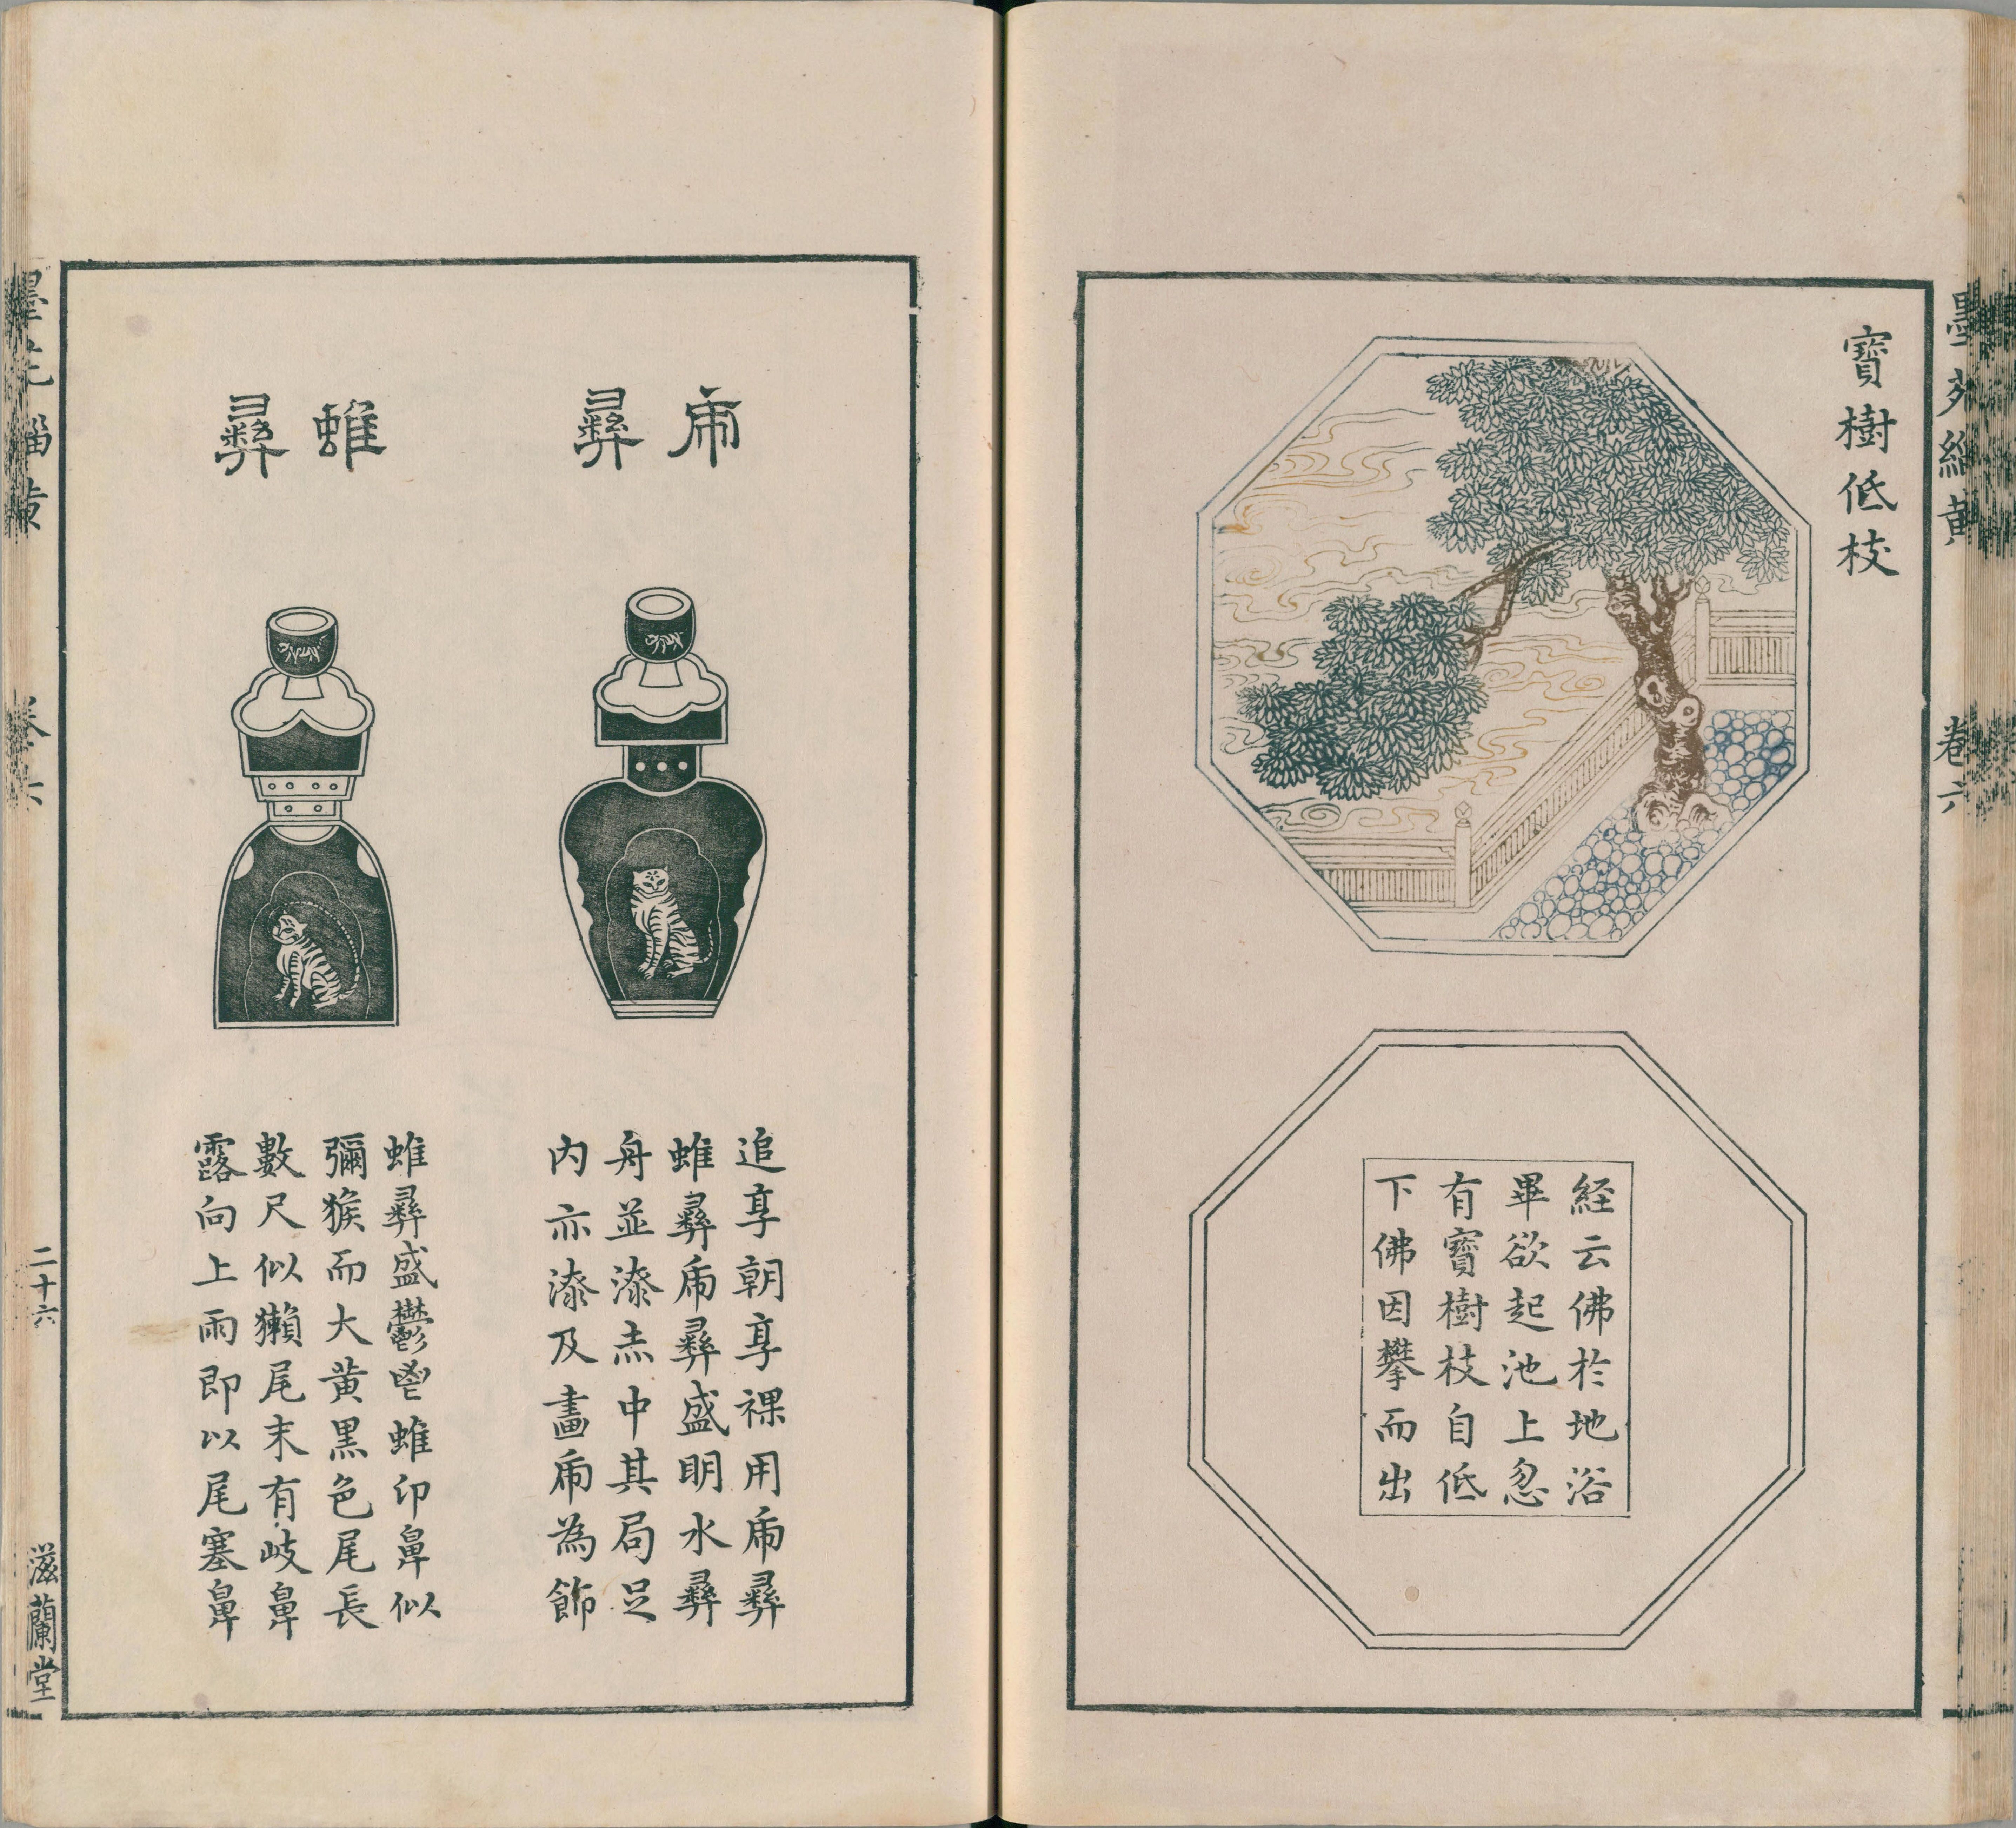 寶樹低枝
経云佛於地浴
畢欲起池上忽
有寶樹枝自低
下佛因攀而出
卷六
乕彝
追享朝享祼用乕彝
蜼彝乕彝盛明水彝
舟並漆赤中其局足
内亦漆及畫乕為飾
蜼彝
蜼彝盛鬱鬯蜼卬鼻似
獼猴而大黄黒色尾長
數尺似獺尾末有岐鼻
露向上雨即以尾塞鼻
二十六
滋蘭堂